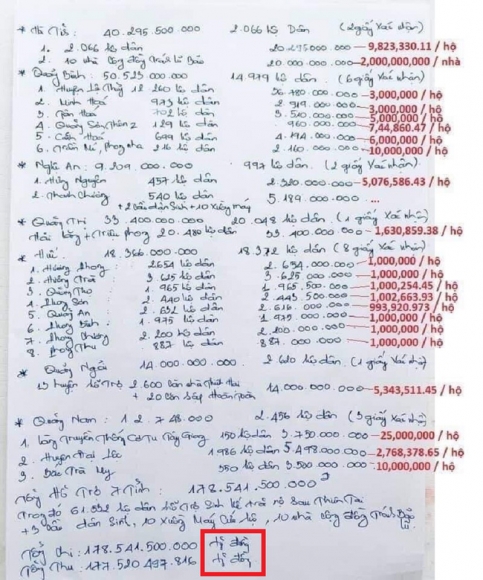 * Hà Tĩnh: 40.295.500.000 2.066 hộ Dân (2 giấy Xác nhận)
1. 2.066 hộ dân 20.295.000.000 9,823,330.11 / hộ
2. 10 nhà Cộng đồng Tránh lũ Bão 20.000.000.000 2,000,000,000 / nhà
* Quảng Bình: 50.523.000.000 14.979 hộ dân (6 giấy Xác nhận)
1. Huyện Lệ Thủy 12.260 hộ dân 36.780.000.000 3,000,000 / hộ
2. Minh Hoá 973 hộ dân 2.919.000.000 3,000,000 / hộ
3. Tân Hoá 702 hộ dân 3.510.000.000 5,000,000 / hộ
4. Quảng Sơn, Thôn 2 129 hộ dân 7,44,860.47 / hộ
5. Cảnh Hoá 699 hộ dân 4.194.000.000 6,000,000 / hộ
6. Phong Nha 216 hộ dân 2.160.000.000 10,000,000 / hộ
* Nghệ An: 9.209.000.000 997 hộ dân. (2 giấy Xác nhận)
1. Hưng Nguyên 457 hộ dân 2.320.000.000 5,076,586.43 / hộ
2. Thanh Chương 540 hộ dân 5.189.000.000 ...
* Quảng Trị 33.400.000.000 20.048 hộ dân (1 giấy Xác nhận)
Hải Lăng + Triệu Phong 20.480 hộ dân 33.400.000.000 1,630,859.38 / hộ
* Huế: 18.366.000.000 18.372 hộ dân (8 giấy Xác nhận)
1. Hương Phong: 2654 hộ dân 2.654.000.000 1,000,000 / hộ
2. Hương Trà 3.625 hộ dân 3.625.000.000 1,000,000 / hộ
3. Quảng Thọ 1.965 hộ dân 1.965.500.000 1,000,254.45 / hộ
4. Phong Sơn 2.440 hộ dân 2.445.500.000 1,002,663.93 / hộ
5. Quảng An 2.632 hộ dân 2.616.000.000 993,920,973 / hộ
6. Phong Bình 1.975 hộ dân 1.975.000.000 1,000,000 / hộ
7. Phong Chương 2.200 hộ dân 2.200.000.000 1,000,000 / hộ
8. Phong Thu 887 hộ dân 887.000.000 1,000,000 / hộ
* Quảng Ngãi 14.000.000.000 2.620 hộ dân (1 giấy Xác nhận)
13 huyện hỗ Trợ 2.600 Căn nhà Thiệt Hại 14.000.000.000 5,343,511.45 / hộ
+ 20 Căn Sập Hoàn Toàn
* Quảng Nam: 12.748.000 2.456 hộ dân (3 giấy Xác nhận)
1. Làng Truyền Thống Cơ Tu Tây Giang 150 hộ dân 3.750.000.000 25,000,000 / hộ
2. Huyện Đại Lộc 1986 hộ dân 5.498.000.000 2,768,378.65 / hộ
3. Bắc Trà My 350 hộ dân 3.500.000.000 10,000,000 / hộ
Tổng Hỗ Trợ 7 Tỉnh: 178.541.500.000
Trong đó 61.532 hộ dân hỗ Trợ Sinh Kế trả nợ Sau Thiên Tai
dân Sinh, 10 Xuồng Máy Cứu hộ, 10 nhà Cộng đồng Tránh Bão lũ
Tổng Chi: 178.541.500.000 tỷ đồng
Tổng Thu: 177.520.497.816 tỷ đồng